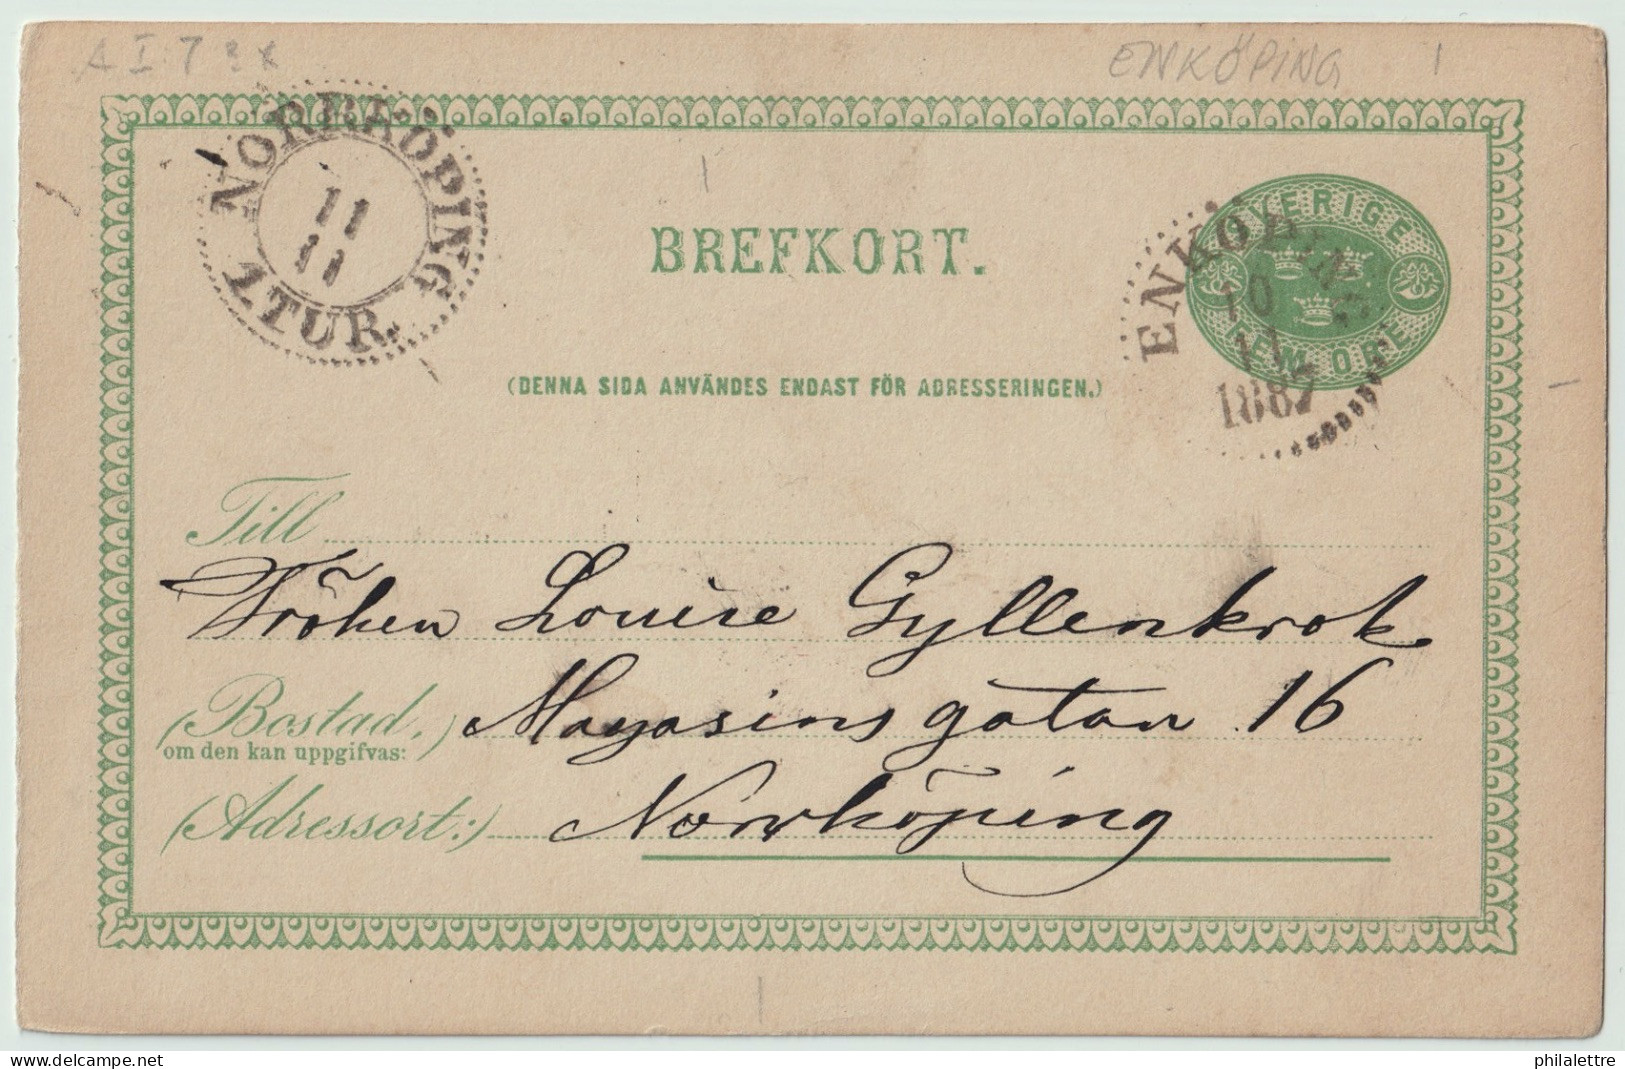 A I 7
ENKÖPING
NORRKÖPING
11
11
1.TUR.
BREFKORT.
SVERIGE
FEM ÖRE
ENKÖPING
10
11
1887
(DENNA SIDA ANVÄNDES ENDAST FÖR ADRESSERINGEN.)
Till
Fröken Louise Gyllenkrok
(Bostad,) Magasinsgatan 16
om den kan uppgifvas:
(Adressort:) Norrköping
delcampe.net
philalettre